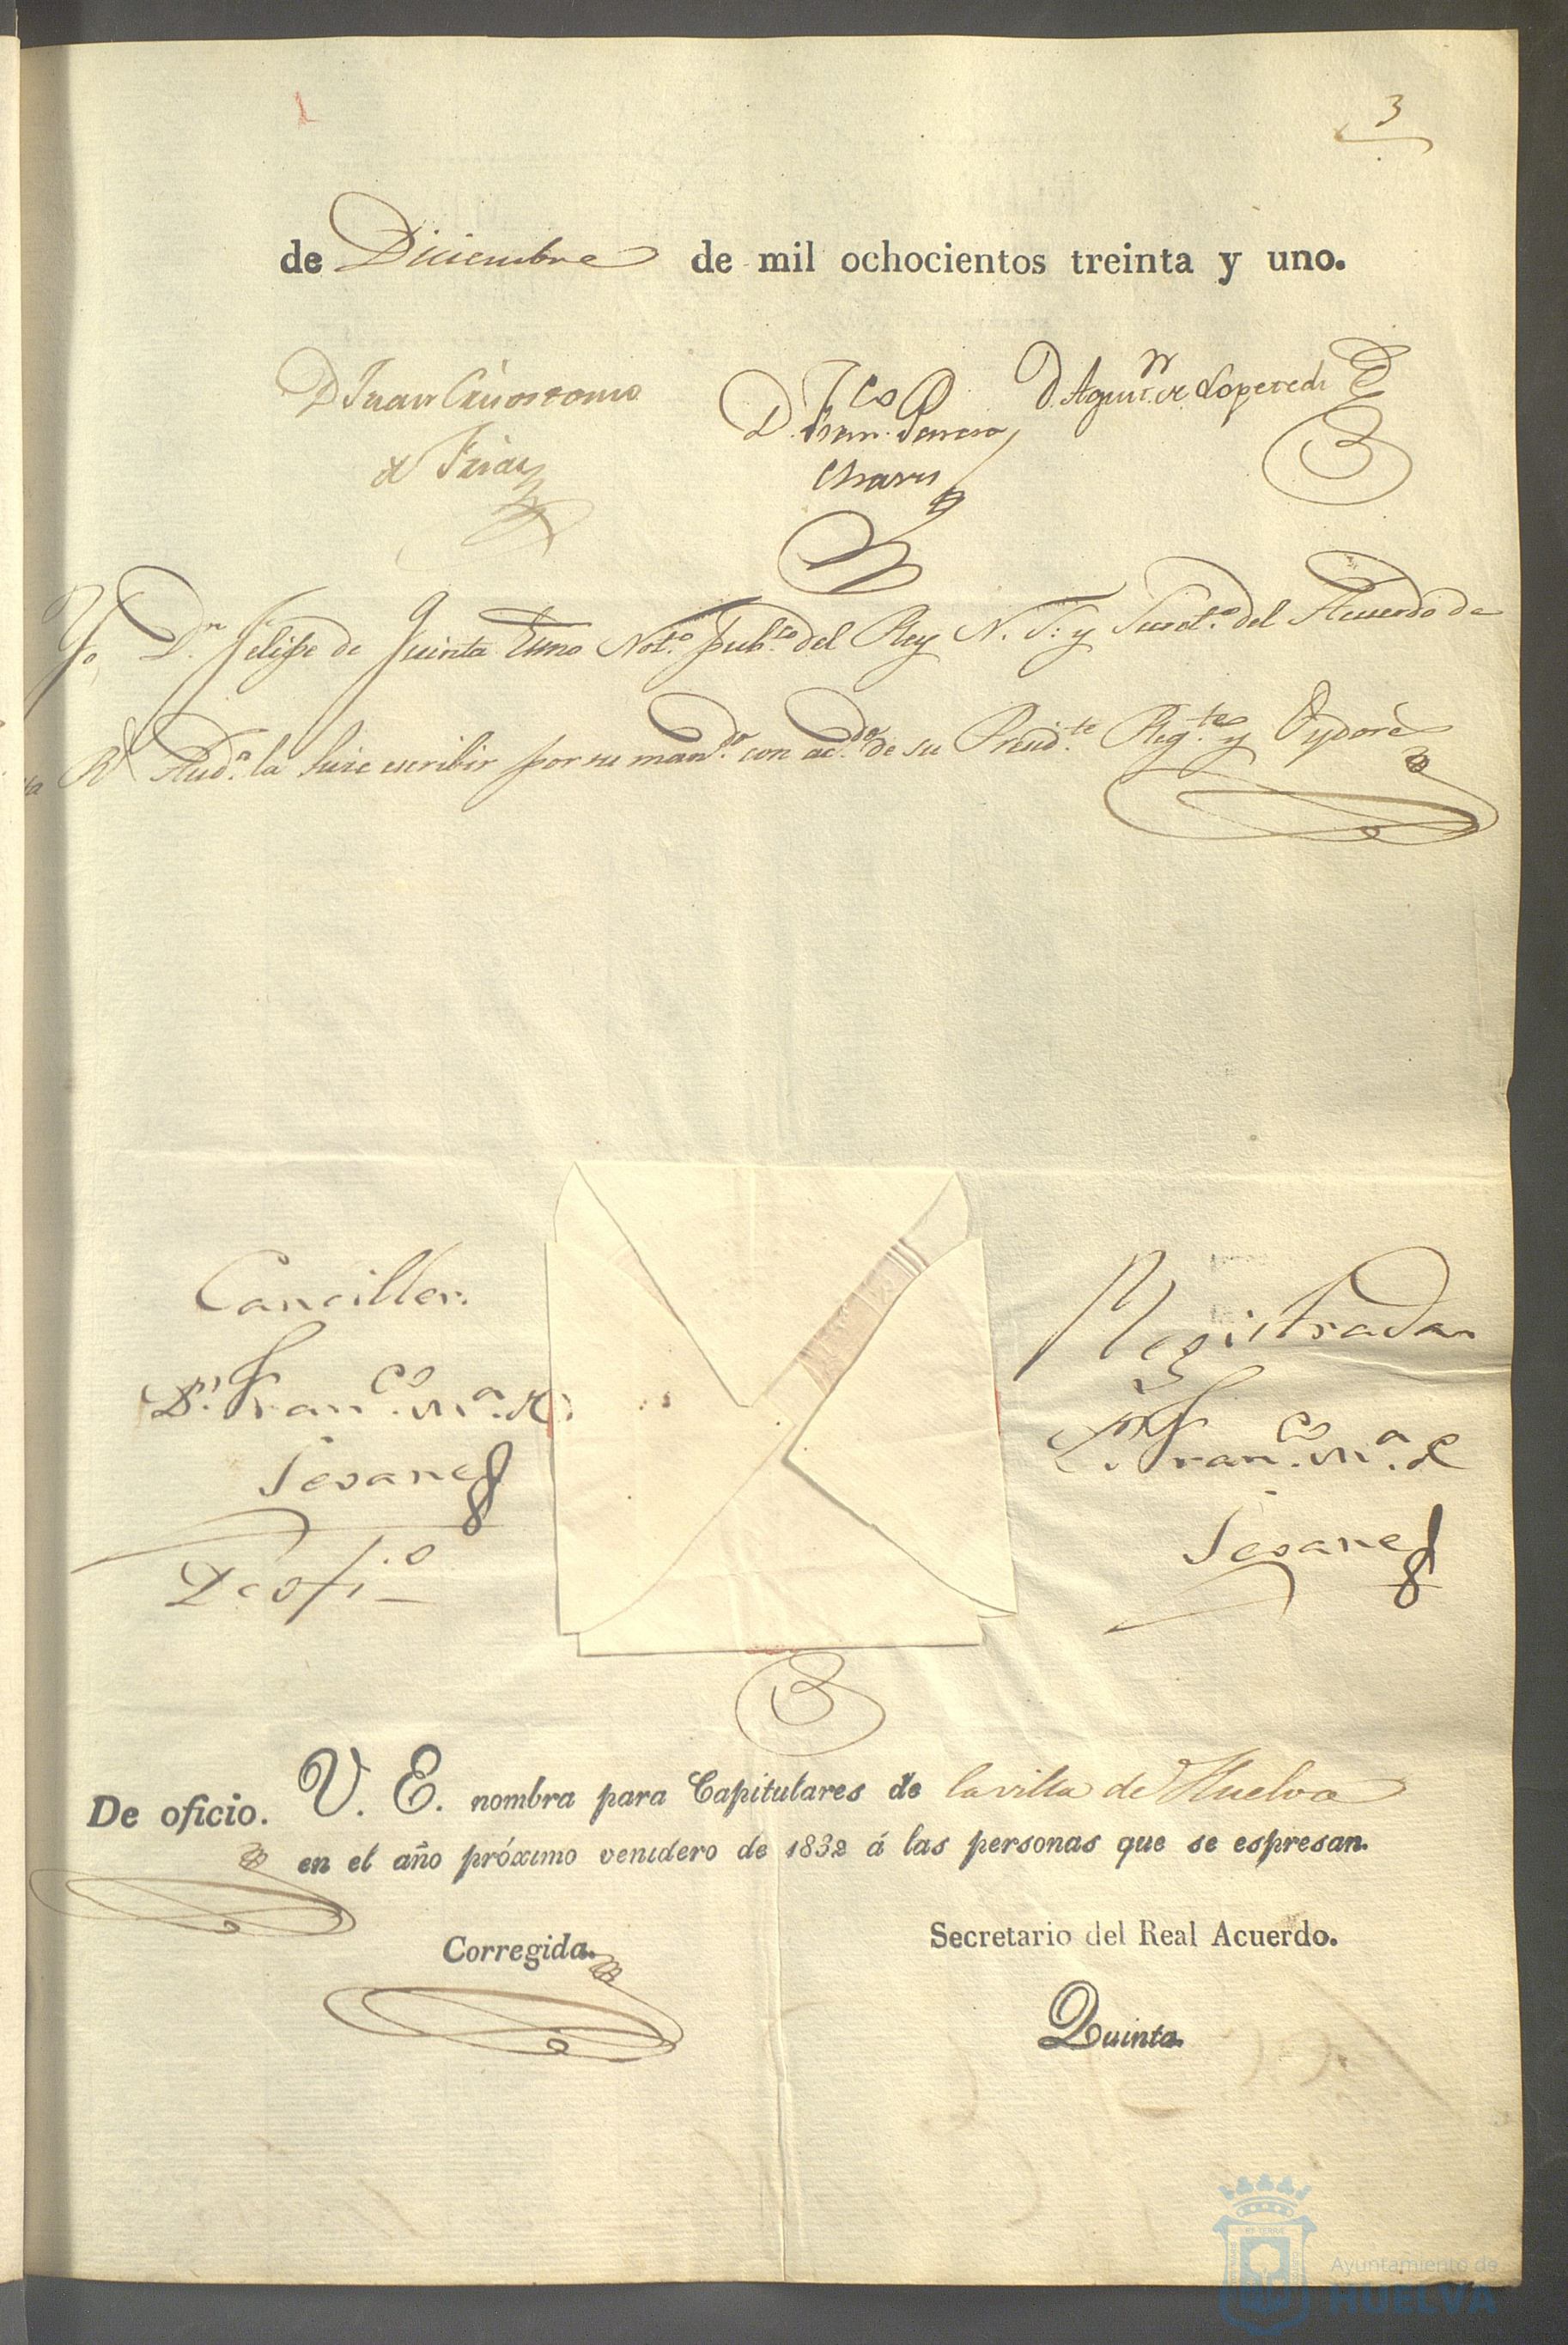 3
de Diciembre de mil ochocientos treinta y uno.
D Juan Crisostomo
de Frias
D. Fran.co Pereira
Chaves
D. Agust.n de Loperedi
Yo, D.n Felipe de Quinta Essno Not.o pub.co del Rey N. S. y Secret.o del Acuerdo de
R.l Aud.a la hice escribir por su mand.o con ac.do de su Presid.te Reg.te y Oydores
Canciller.
D.n Fran.co M.a de
Seoane
De ofi.o
Registrada
D.n Fran.co M.a de
Seoane
De oficio. V. E. nombra para Capitulares de la villa de Huelva
en el año próximo venidero de 1832 á las personas que se espresan.
Corregida.
Secretario del Real Acuerdo.
Quinta
Ayuntamiento de
HUELVA